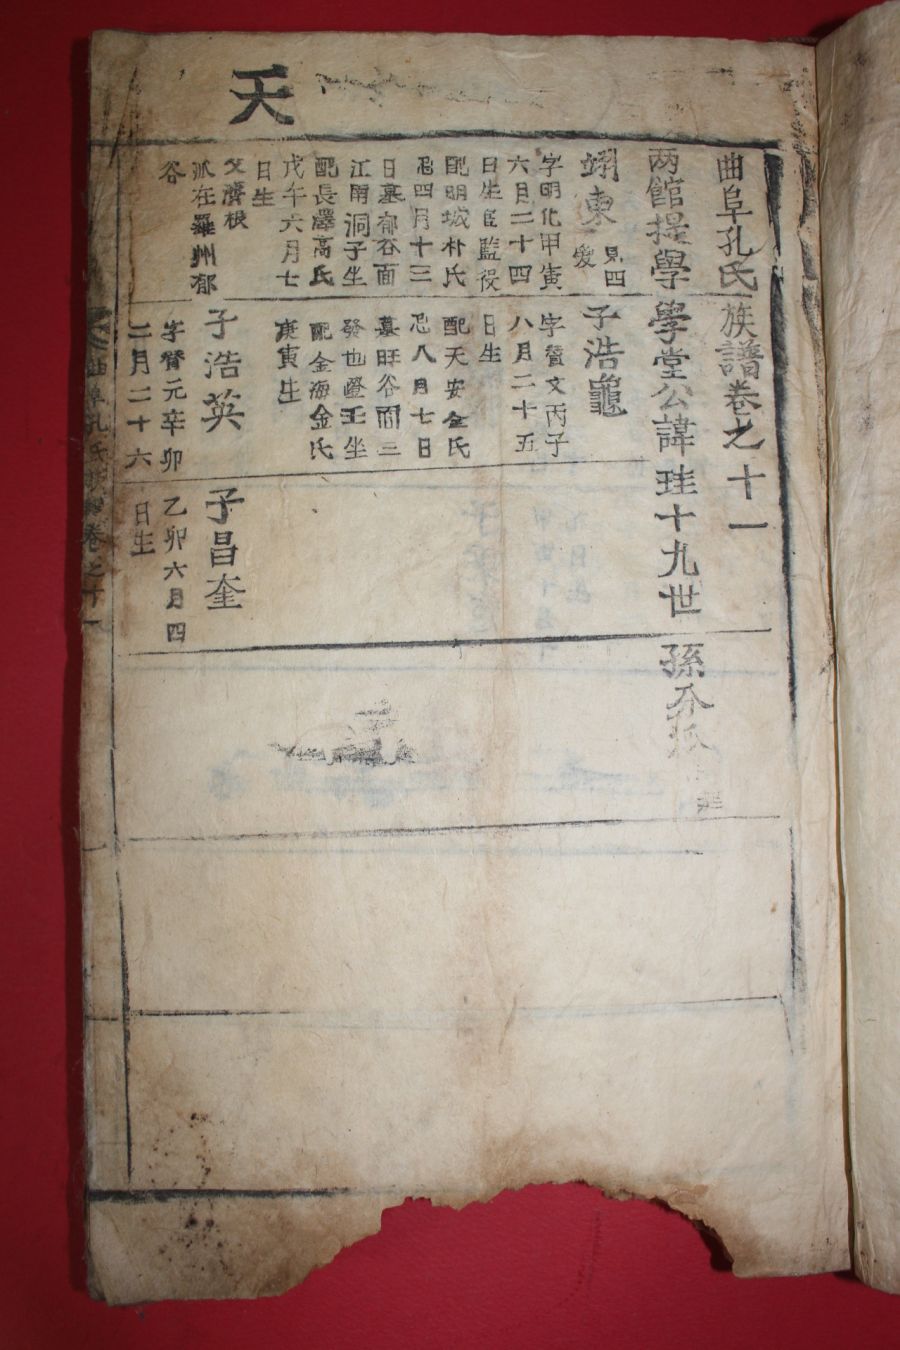 天
曲阜孔氏族譜卷之十一
两館提學學堂公諱珪十九世孫
見四
愛
字明化甲寅
六月二十四
日生官監役
配明城朴氏
忌四月十三
日墓郁谷面
江南洞子坐
配長澤高氏
戊午六月七
日生
父濟根
派在羅州郁
谷
子浩龜
字贊文丙子
八月二十五
日生
配天安全氏
忌八月七日
墓旺谷面三
發也嶝壬坐
配金海金氏
庚寅生
子浩英
字贊元辛卯
二月二十六
子昌奎
乙卯六月四
日生
曲阜孔氏族譜卷之十一